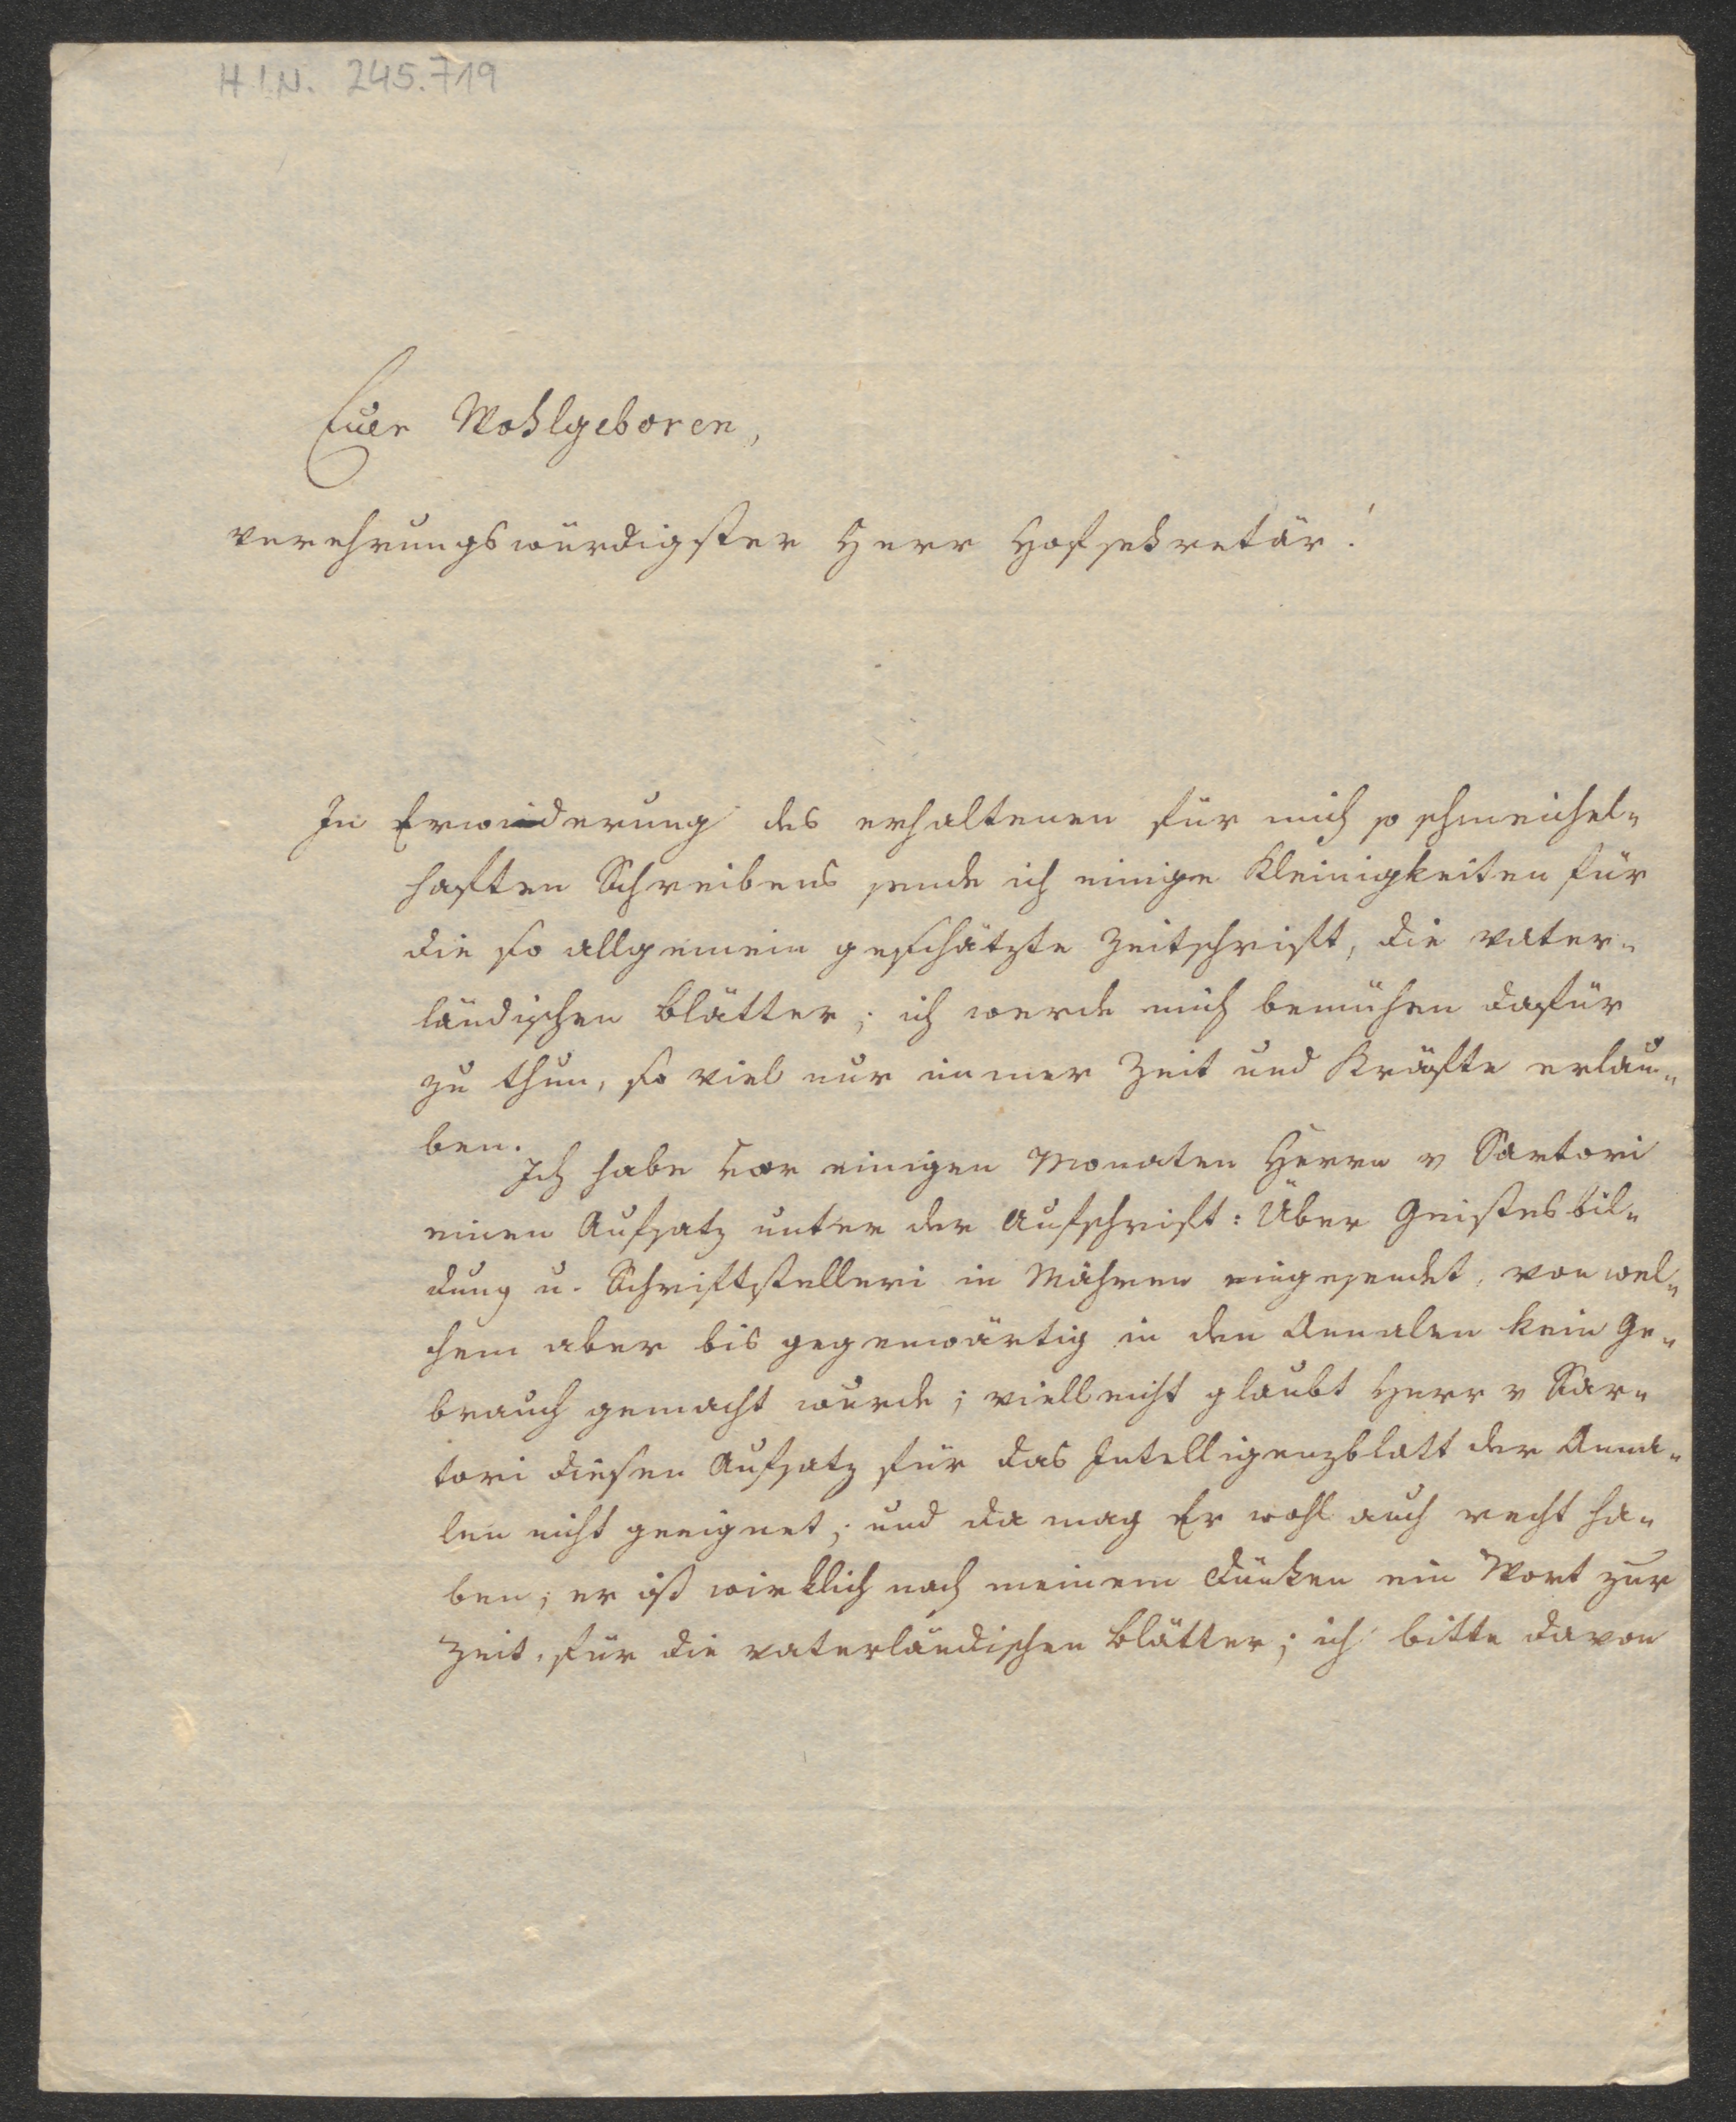 H.I.N. 245.719
Euer Wohlgeboren,
verehrungswürdigster Herr Hofsekretär!
In Erwiederung des erhaltenen für mich so schmeichel-
haften Schreibens sende ich einige Kleinigkeiten für
die so allgemein geschätzte Zeitschrift, die vater-
ländischen Blätter; ich werde mich bemühen dafür
zu thun, so viel nur immer Zeit und Kräfte erlau-
ben.
Ich habe vor einigen Monaten Herrn v Sartori
einen Aufsatz unter der Aufschrift: Über Geistesbil-
dung u. Schriftstelleri in Mähren eingesendet, von wel-
chem aber bis gegenwärtig in den Annalen kein Ge-
brauch gemacht wurde; vielleicht glaubt Herr v Sar-
tori diesen Aufsatz für das Intelligenzblatt der Anna-
len nicht geeignet; und da mag Er wohl auch recht ha-
ben; er ist wirklich nach meinem Dünken ein Wort zur
Zeit, für die vaterländischen Blätter; ich bitte davon